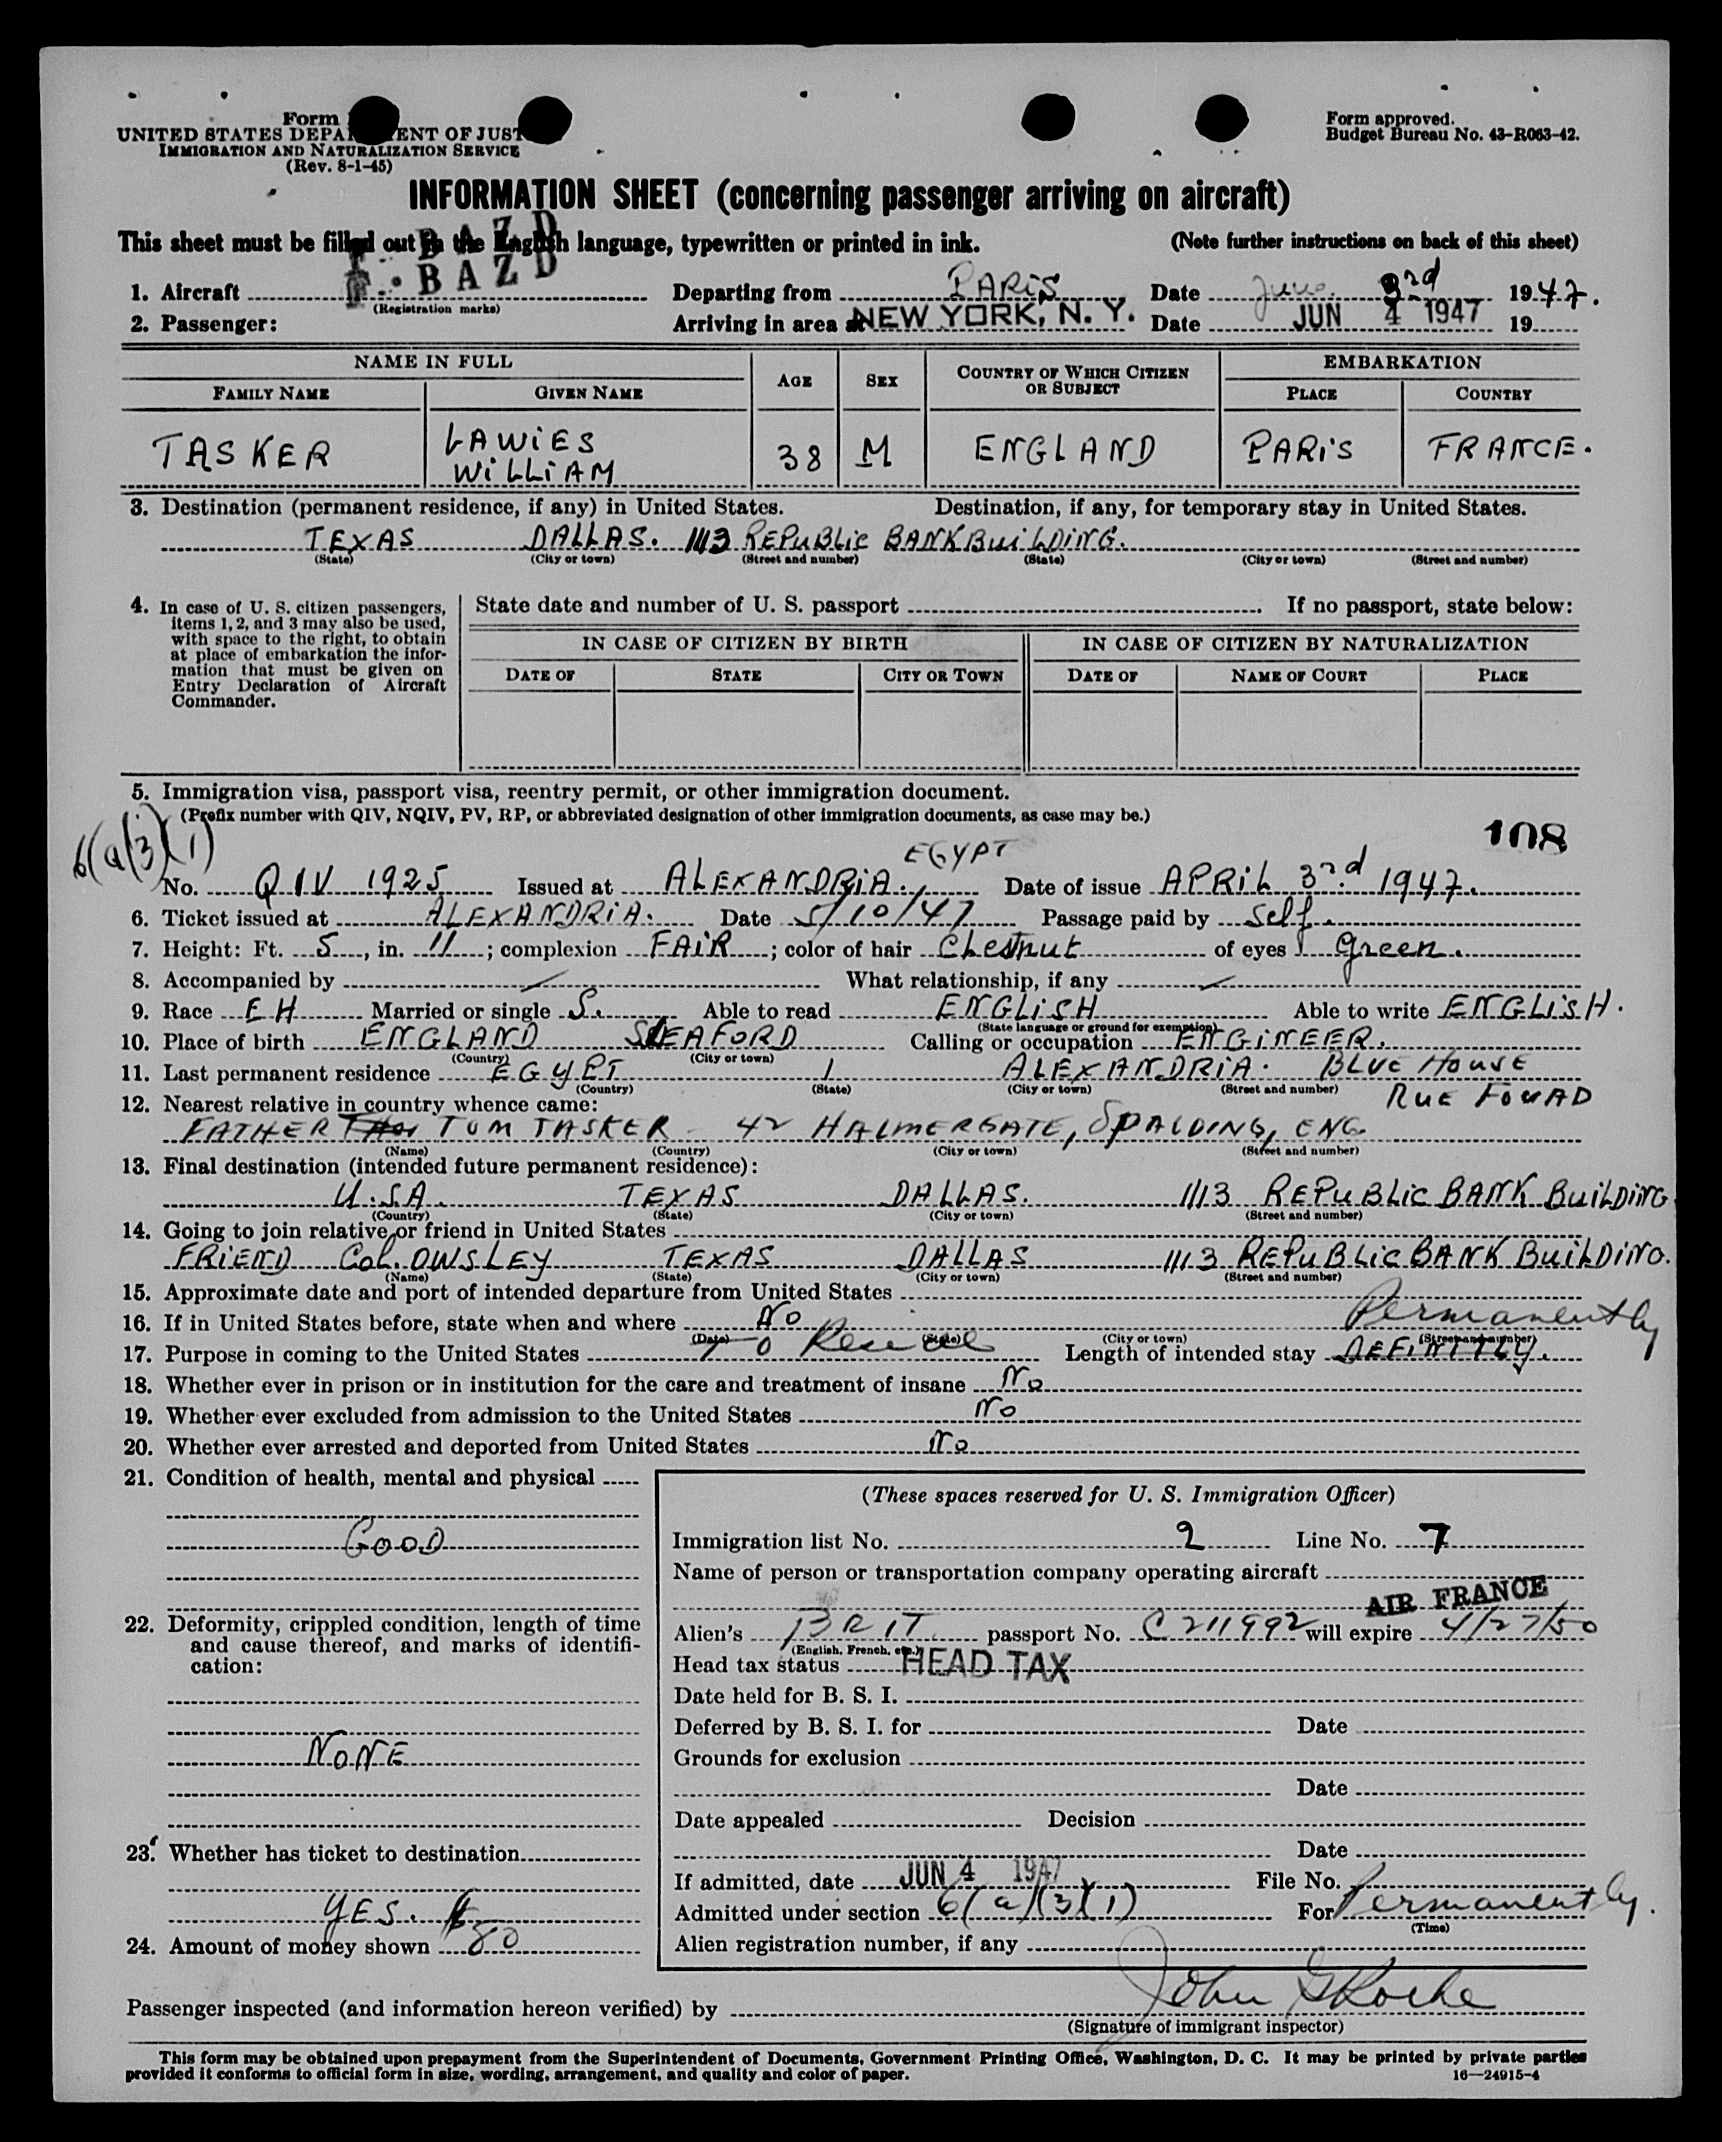 Form
UNITED STATES DEPA ENT OF JUST
IMMIGRATION AND NATURALIZATION SERVICE
(Rev. 8-1-45)
Form approved.
Budget Bureau No. 43-R063-42.
INFORMATION SHEET (concerning passenger arriving on aircraft)
This sheet must be filled out in the English language, typewritten or printed in ink. (Note further instructions on back of this sheet)
F. BAZD
F. BAZD
1. Aircraft (Registration marks) Departing from PARIS Date June 3rd 1947.
2. Passenger: Arriving in area at NEW YORK, N. Y. Date JUN 4 1947 19
NAME IN FULL AGE SEX COUNTRY OF WHICH CITIZEN OR SUBJECT EMBARKATION
FAMILY NAME GIVEN NAME PLACE COUNTRY
TASKER LAWIES WILLIAM 38 M ENGLAND PARIS FRANCE.
3. Destination (permanent residence, if any) in United States. Destination, if any, for temporary stay in United States.
TEXAS DALLAS. 1113 REPUBLIC BANK BUILDING.
(State) (City or town) (Street and number) (State) (City or town) (Street and number)
4. In case of U. S. citizen passengers,
items 1, 2, and 3 may also be used,
with space to the right, to obtain
at place of embarkation the infor-
mation that must be given on
Entry Declaration of Aircraft
Commander.
State date and number of U. S. passport . If no passport, state below:
IN CASE OF CITIZEN BY BIRTH IN CASE OF CITIZEN BY NATURALIZATION
DATE OF STATE CITY OR TOWN DATE OF NAME OF COURT PLACE
5. Immigration visa, passport visa, reentry permit, or other immigration document.
(Prefix number with QIV, NQIV, PV, RP, or abbreviated designation of other immigration documents, as case may be.)
6(a)(3)(1)
108
EGYPT
No. QIV 1925 Issued at ALEXANDRIA., Date of issue APRIL 3rd 1947.
6. Ticket issued at ALEXANDRIA. Date 5/10/47 Passage paid by Self.
7. Height: Ft. 5, in. 11; complexion FAIR; color of hair Chestnut of eyes green.
8. Accompanied by What relationship, if any
9. Race EH Married or single S. Able to read ENGLISH Able to write ENGLISH.
(State language or ground for exemption)
10. Place of birth ENGLAND SLEAFORD Calling or occupation ENGINEER.
(Country) (City or town)
11. Last permanent residence EGYPT ALEXANDRIA. BLUE HOUSE
(Country) (State) (City or town) (Street and number) RUE FOUAD
12. Nearest relative in country whence came:
FATHER TOM TASKER 42 HALMERGATE, SPALDING, ENG
(Name) (Country) (City or town) (Street and number)
13. Final destination (intended future permanent residence):
U.S.A. TEXAS DALLAS. 1113 REPUBLIC BANK BUILDING
(Country) (State) (City or town) (Street and number)
14. Going to join relative or friend in United States
FRIEND COL. OWSLEY TEXAS DALLAS 1113 REPUBLIC BANK BUILDING.
(Name) (State) (City or town) (Street and number)
15. Approximate date and port of intended departure from United States
16. If in United States before, state when and where NO
(Date) (State) (City or town) (Street and number)
Permanently
17. Purpose in coming to the United States To Reside Length of intended stay DEFINITLY.
18. Whether ever in prison or in institution for the care and treatment of insane No
19. Whether ever excluded from admission to the United States No
20. Whether ever arrested and deported from United States No
21. Condition of health, mental and physical
GOOD
22. Deformity, crippled condition, length of time
and cause thereof, and marks of identifi-
cation:
NONE
23. Whether has ticket to destination
YES.
24. Amount of money shown $80
(These spaces reserved for U. S. Immigration Officer)
Immigration list No. 2 Line No. 7
Name of person or transportation company operating aircraft
AIR FRANCE
Alien's BRIT passport No. C 211992 will expire 4/27/50
(English, French, etc.)
Head tax status HEAD TAX
Date held for B. S. I.
Deferred by B. S. I. for Date
Grounds for exclusion
Date
Date appealed Decision
Date
If admitted, date JUN 4 1947 File No.
Admitted under section 6(a)(3)(1) For Permanently.
(Time)
Alien registration number, if any
Passenger inspected (and information hereon verified) by John G Roche
(Signature of immigrant inspector)
This form may be obtained upon prepayment from the Superintendent of Documents, Government Printing Office, Washington, D. C. It may be printed by private parties
provided it conforms to official form in size, wording, arrangement, and quality and color of paper. 16—24915-4